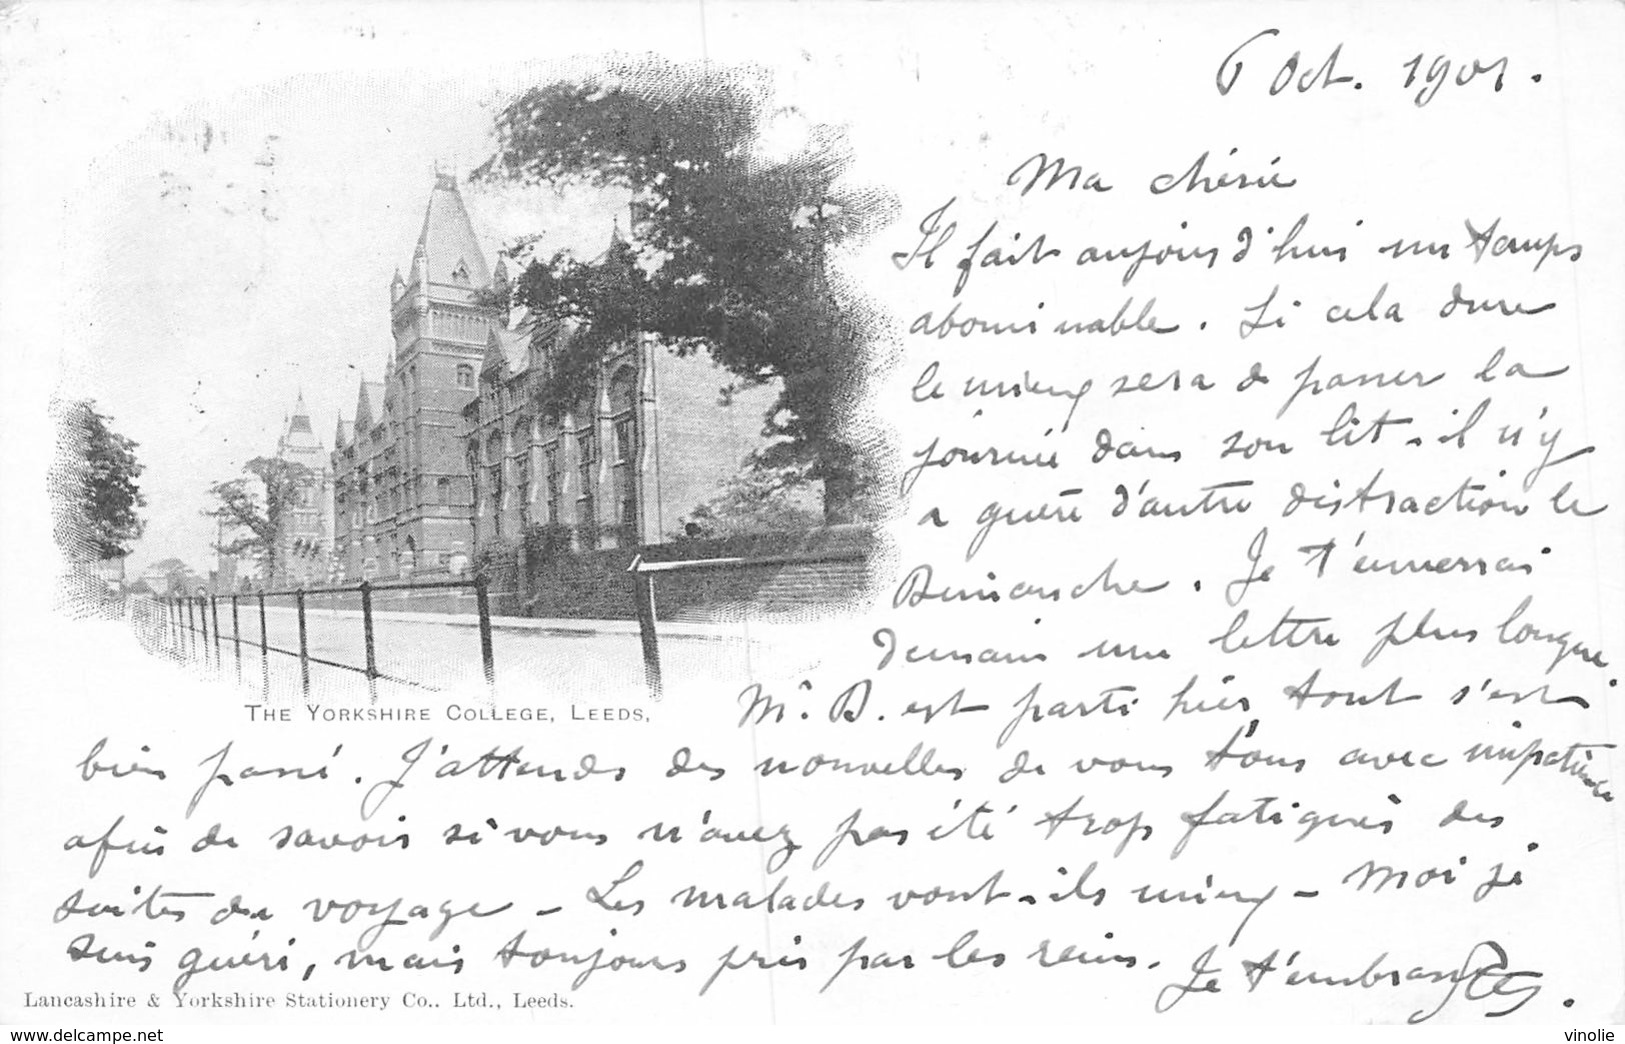 6 Oct. 1901.
Ma chérie
Il fait aujourd'hui un temps
abominable. Si cela dure
le mieux sera de passer la
journée dans son lit - il n'y
a guère d'autre distraction le
Dimanche. Je t'enverrai
demain une lettre plus longue.
Mr. B. est parti hier, tout s'est
THE YORKSHIRE COLLEGE, LEEDS,
bien passé. J'attends des nouvelles de vous tous avec impatience
afin de savoir si vous n'avez pas été trop fatigués des
suites du voyage - Les malades vont-ils mieux - Moi je
suis guéri, mais toujours pris par les reins. Je t'embrasse
LANCASHIRE & YORKSHIRE STATIONERY CO., LTD., LEEDS.
www.delcampe.net
vinolie